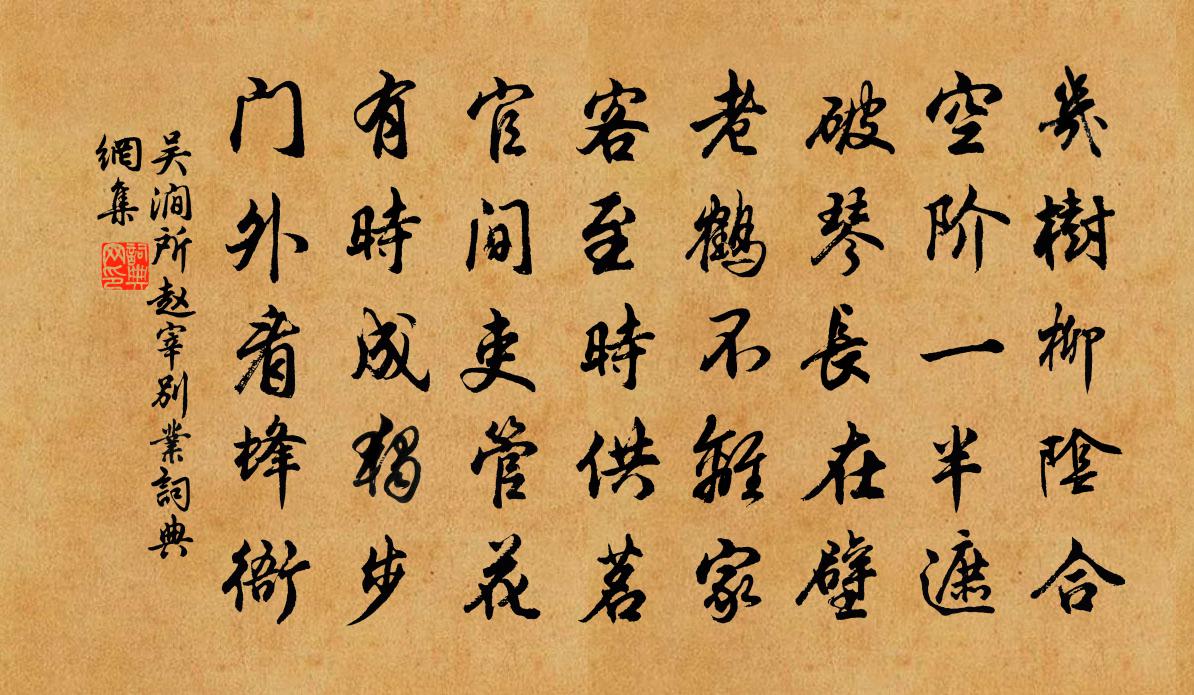 幾樹柳陰合
空阶一半遮
破琴長在壁
老鶴不離家
客至時供茗
官间吏管花
有時成獨步
门外看蜂衙
吴涧所赵宰别業詞典
網集
詞典
网印